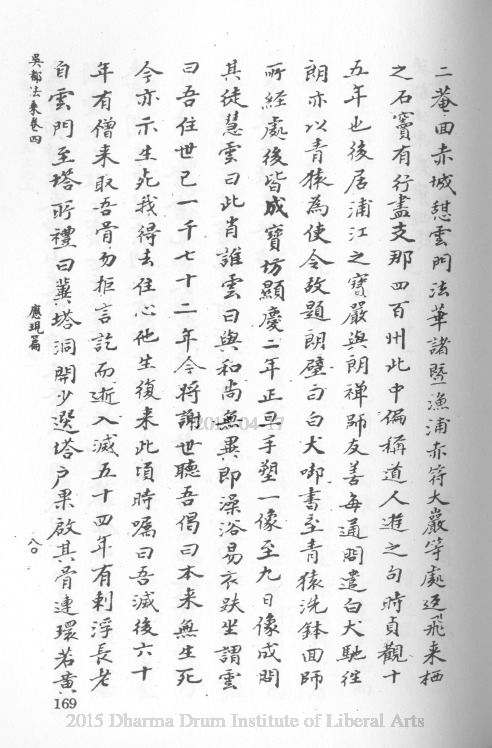 二菴面赤城憇雲門法華諸暨漁浦赤符大巖等處返飛来栖
之石竇有行盡支那四百州此中偏稱道人遊之句時貞觀十
五年也後居浦江之寶嚴與朗禅師友善每通問遣白犬馳往
朗亦以青猿為使令故題朗壁曰白犬啣書至青猿洗鉢回師
所經處後皆成寶坊顯慶二年正旦手塑一像至九日像成問
其徒慧雲曰此肖誰雲曰與和尚無異即澡浴易衣趺坐謂雲
曰吾住世已一千七十二年今將謝世聽吾偈曰本来無生死
今亦示生死我得去住心他生復来此頃時囑曰吾滅後六十
年有僧来取吾骨勿拒言訖而逝入滅五十四年有刺浮長老
自雲門至塔所禮曰冀塔洞開少選塔户果啟其骨連環若黄
吳都法乘卷四
應現篇
八〇
169
2015-04-17
2015 Dharma Drum Institute of Liberal Arts